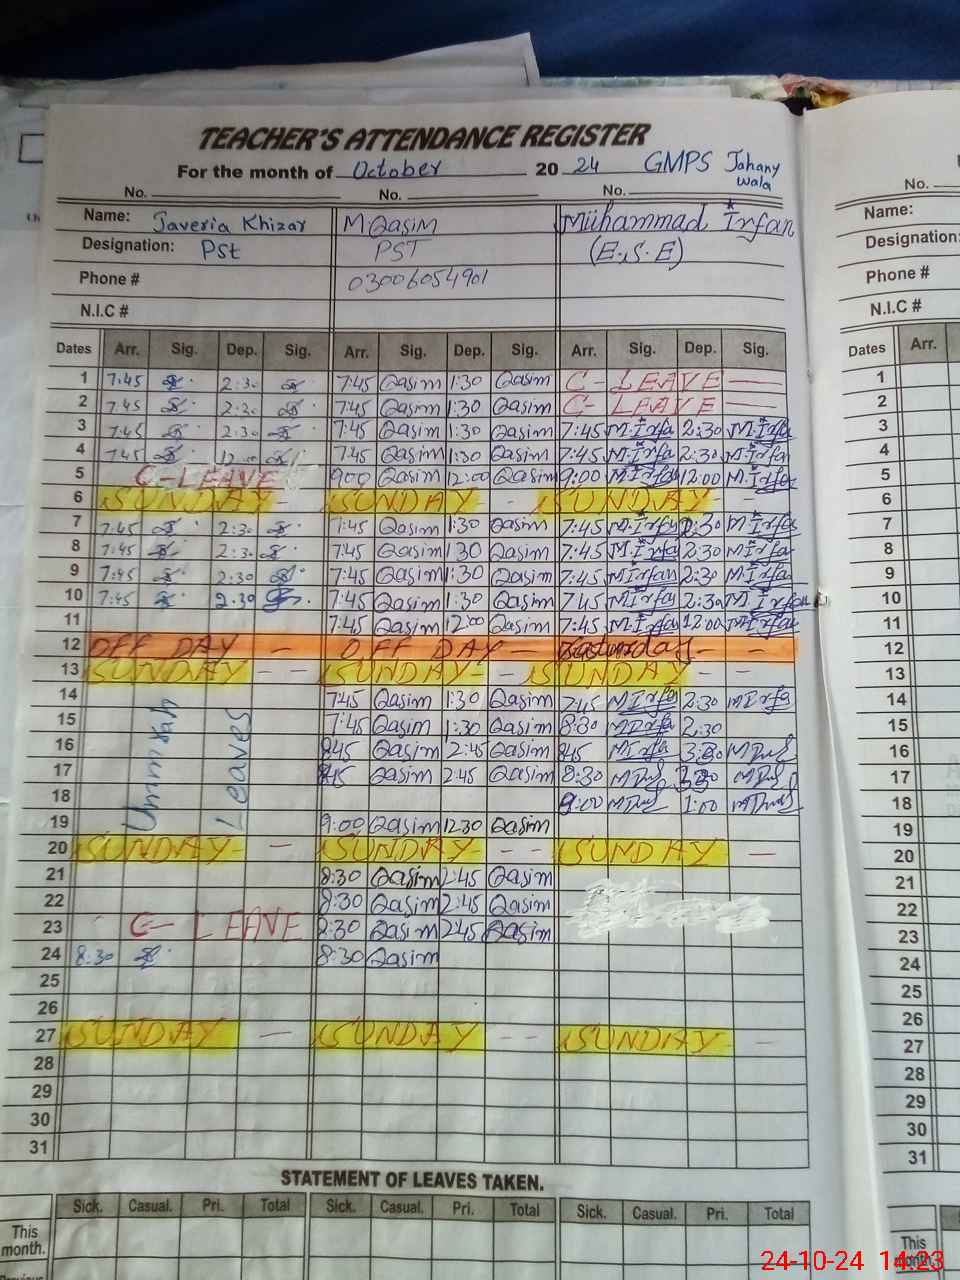 TEACHER'S ATTENDANCE REGISTER
For the month of October 2024 GMPS Jahany wala
No. No. No. No.
Name: Javeria Khizar M.Qasim Muhammad Irfan Name:
Designation: Pst PST (E.S.E) Designation:
Phone # 03006054901 Phone #
N.I.C # N.I.C #
Dates Arr. Sig. Dep. Sig. Arr. Sig. Dep. Sig. Arr. Sig. Dep. Sig. Dates Arr.
1 7:45 2:30 7:45 Qasim 1:30 Qasim C-LEAVE 1
2 7:45 2:30 7:45 Qasim 1:30 Qasim C-LEAVE 2
3 7:45 2:30 7:45 Qasim 1:30 Qasim 7:45 M.Irfa 2:30 M.Irfa 3
4 7:45 12:00 7:45 Qasim 1:30 Qasim 7:45 M.Irfa 2:30 M.Irfa 4
5 C-LEAVE 9:00 Qasim 12:00 Qasim 9:00 M.Irfa 12:00 M.Irfa 5
6 SUNDAY - SUNDAY - - SUNDAY - 6
7 7:45 2:30 7:45 Qasim 1:30 Qasim 7:45 M.Irfa 2:30 M.Irfa 7
8 7:45 2:30 7:45 Qasim 1:30 Qasim 7:45 M.Irfa 2:30 M.Irfa 8
9 7:45 2:30 7:45 Qasim 1:30 Qasim 7:45 MIrfan 2:30 M.Irfa 9
10 7:45 2:30 7:45 Qasim 1:30 Qasim 7:45 M.Irfa 2:30 M.Irfan 10
11 7:45 Qasim 12:00 Qasim 7:45 M.Irfa 12:00 M.Irfa 11
12 OFF DAY - OFF DAY - - - 12
13 SUNDAY - - SUNDAY - - SUNDAY - 13
14 7:45 Qasim 1:30 Qasim 7:45 MIrfa 2:30 MIrfa 14
15 7:45 Qasim 1:30 Qasim 8:30 MIrfa 2:30 15
16 8:45 Qasim 2:45 Qasim 8:45 MIrfa 3:30 16
17 8:45 Qasim 2:45 Qasim 8:30 17
18 9:00 1:00 18
Ummrah Leaves
19 9:00 Qasim 12:30 Qasim 19
20 SUNDAY - SUNDAY - - SUNDAY - 20
21 8:30 Qasim 2:45 Qasim 21
22 8:30 Qasim 2:45 Qasim 22
23 C-LEAVE 8:30 Qasim 2:45 Qasim 23
24 8:30 8:30 Qasim 24
25 25
26 26
27 SUNDAY - SUNDAY - - SUNDAY - 27
28 28
29 29
30 30
31 31
STATEMENT OF LEAVES TAKEN.
Sick. Casual. Pri. Total Sick. Casual. Pri. Total Sick. Casual. Pri. Total
This month. This month.
24-10-24 14:23